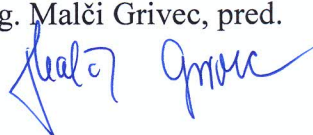 g. Malči Grivec, pred.
Malči Grivec